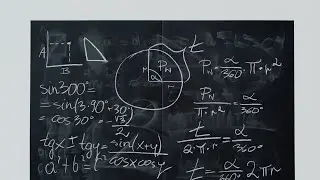 A
B
r
P_w
α
r
t
sin300°=
=sin(3·90°+30°)
=cos30°=-√3/2
tgx±tgy=sin(x±y)/cosxcosy
a²+b²=
P_w=α/360°·π·r²
P_w/π·r²=α/360°
t/2·π·r=α/360°
t=α/360°·2πr